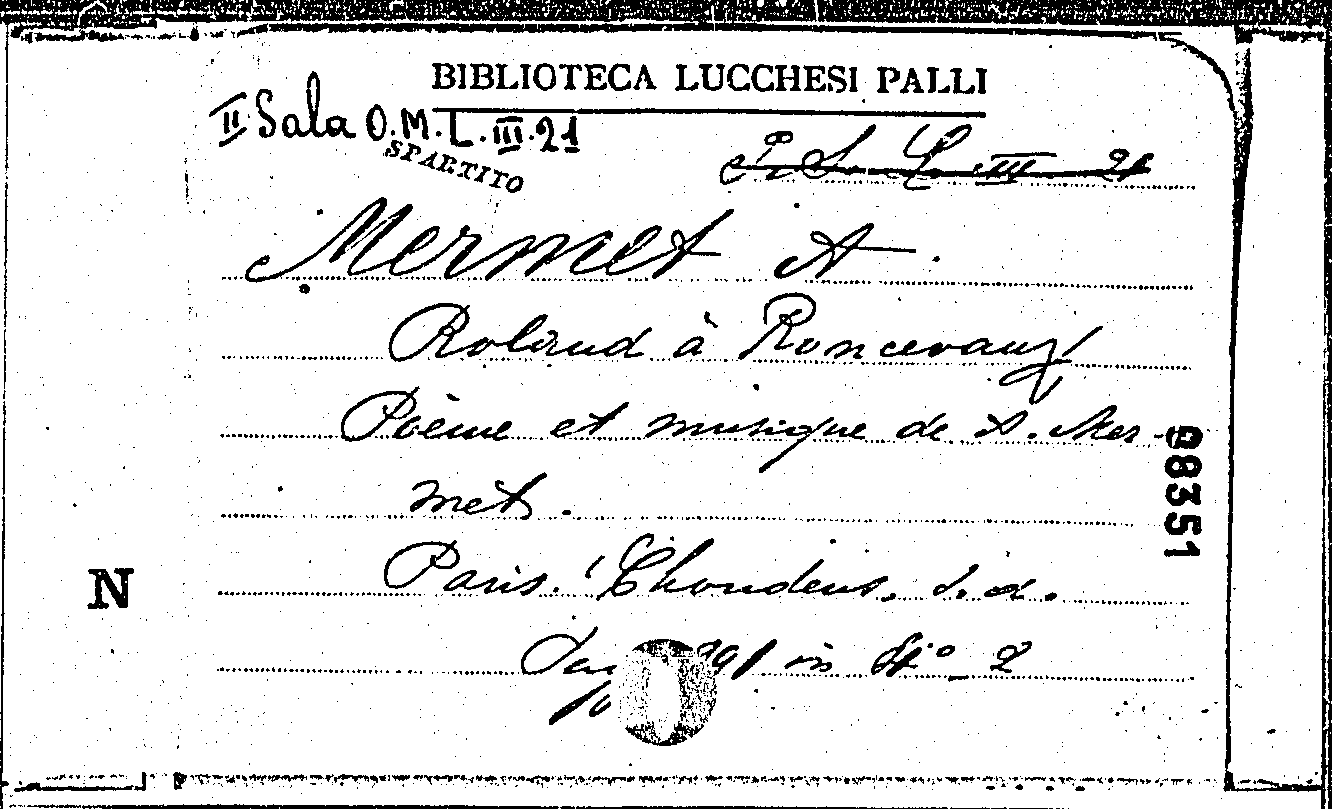 BIBLIOTECA LUCCHESI PALLI
II Sala O.M.L.III.21
SPARTITO
P. S. L. III 21
Mermet A.
Roland à Roncevaux
Poème et musique de A. Mer-
met.
Paris. Choudens, s.d.
in 4º 2
N
98351